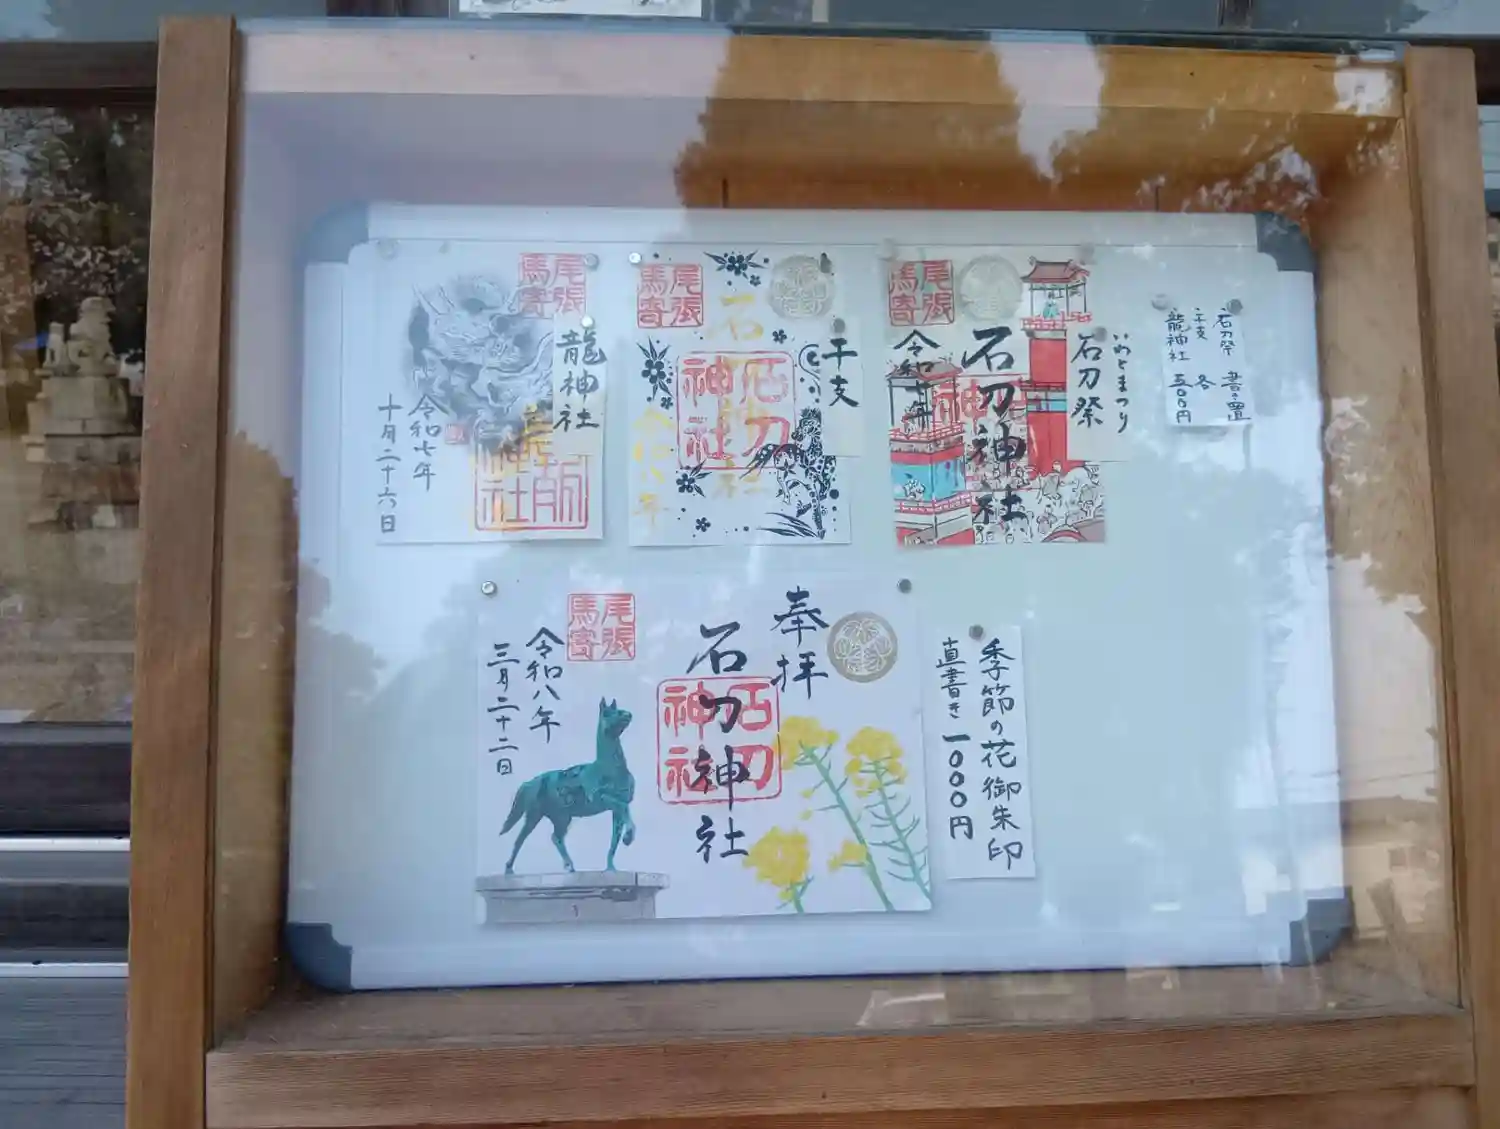 尾張
馬寄
龍神社
令和七年
十月二十六日
尾張
馬寄
干支
石刀神社
石刀
神社
令和八年
尾張
馬寄
いわとまつり
石刀祭
石刀神社
令和七年
石刀祭 書き置
干支 各
龍神社 五〇〇円
奉拝
尾張
馬寄
石刀神社
石刀
神社
令和八年
三月二十二日
季節の花御朱印
直書き 一〇〇〇円